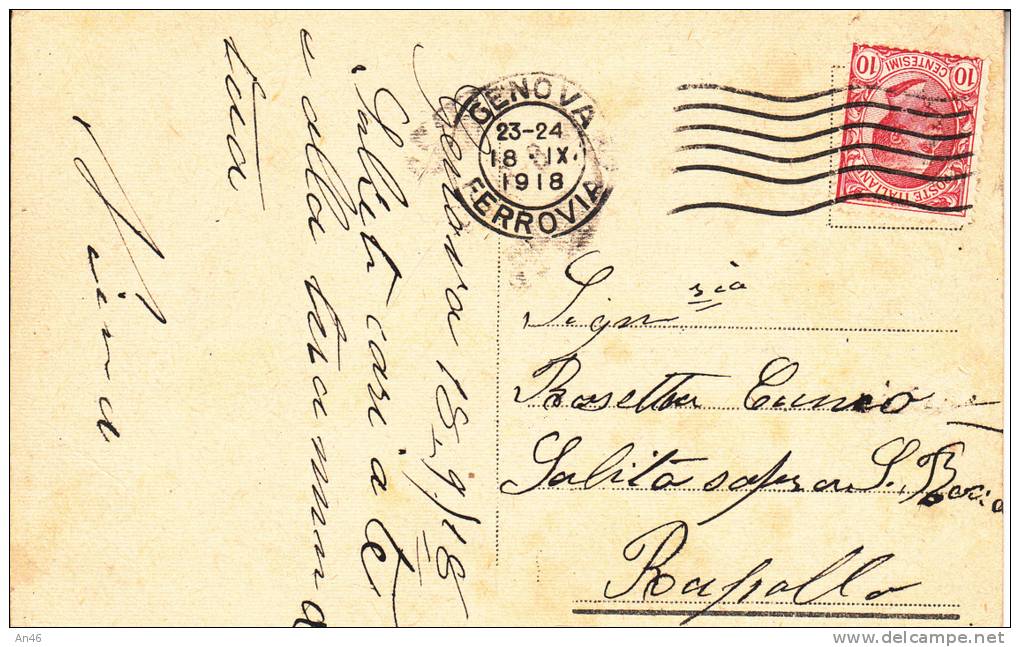 Genova 18-9/18
Saluti cari a te
e alla tua mmma
tua
Nina
GENOVA
23-24
18 · IX.
1918
FERROVIA
10 CENTESIMI 10
POSTE ITALIANE
Sign sia
Rosetta Cuneo
Salita sopra S.
Rapallo
An46
www.delcampe.net